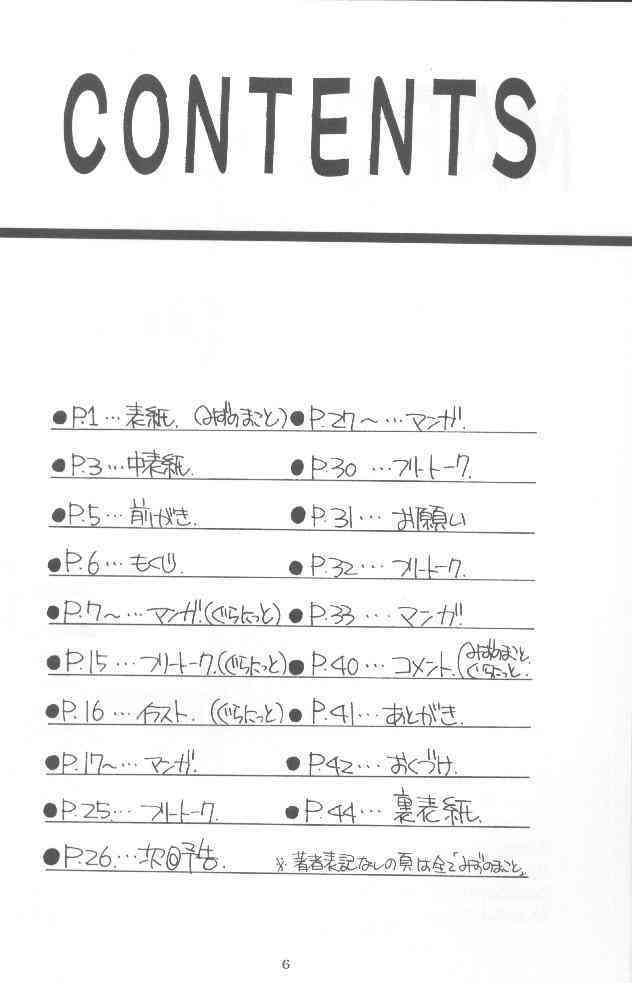 CONTENTS
●P.1…表紙.(みずのまこと)
●P.3…中表紙.
●P.5…前がき.
●P.6…もくじ.
●P.7〜…マンガ.(ぐらにっと)
●P.15…フリートーク.(ぐらにっと)
●P.16…イラスト.(ぐらにっと)
●P.17〜…マンガ.
●P.25…フリートーク.
●P.26…次回予告.
●P.27〜…マンガ.
●P.30…フリートーク.
●P.31…お願い
●P.32…フリートーク.
●P.33…マンガ.
●P.40…コメント.(みずのまこと.ぐらにっと.
●P.41…あとがき.
●P.42…おくづけ.
●P.44…裏表紙.
※著者表記なしの頁は全て「みずのまこと」
6